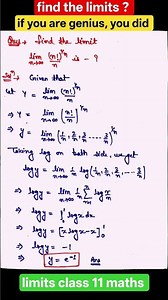 find the limits ?
if you are genius, you did
Ques:- find the limit
lim n→∞ (n!)^{1/n} / n is - ?
Solⁿ:- Given that
Let y = lim n→∞ (n!)^{1/n} / n
y = lim n→∞ (n! / nⁿ)^{1/n}
y = lim n→∞ (1/n · 2/n · 3/n ... n/n)^{1/n}
Taking log on both side, we get
log y = lim n→∞ 1/n log (1/n · 2/n · 3/n ... n/n)
log y = lim n→∞ 1/n Σ log
log y = ∫₀¹ log x dx
log y = [x log x - x]₀¹
log y = -1
y = e⁻¹ Ans
limits class 11 maths